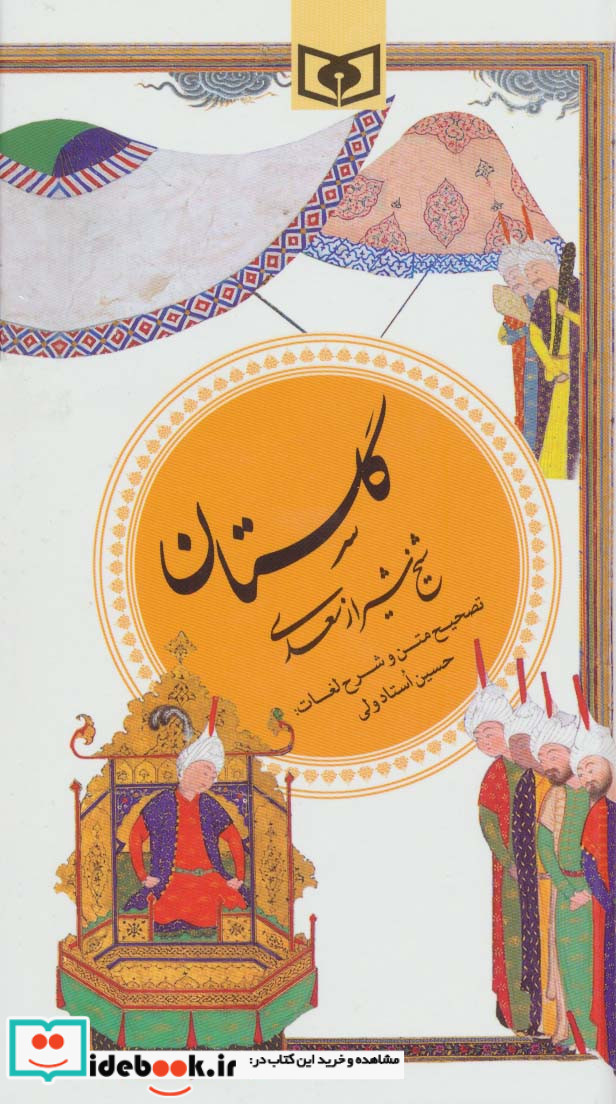 گلستان
شیخ شیراز سعدی
تصحیح متن و شرح لغات:
حسین أستادولی
مشاهده و خرید این کتاب در:
idebook.ir